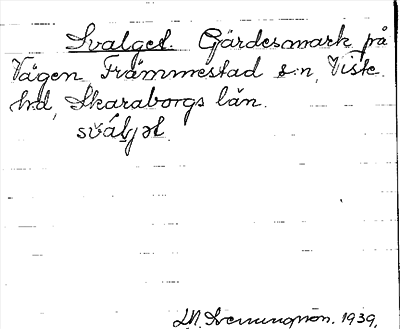 Svalgel. Gärdesmark på
Vägen, Främmestad s:n, Viste
hd, Skaraborgs län.
sválgəl.
1939.